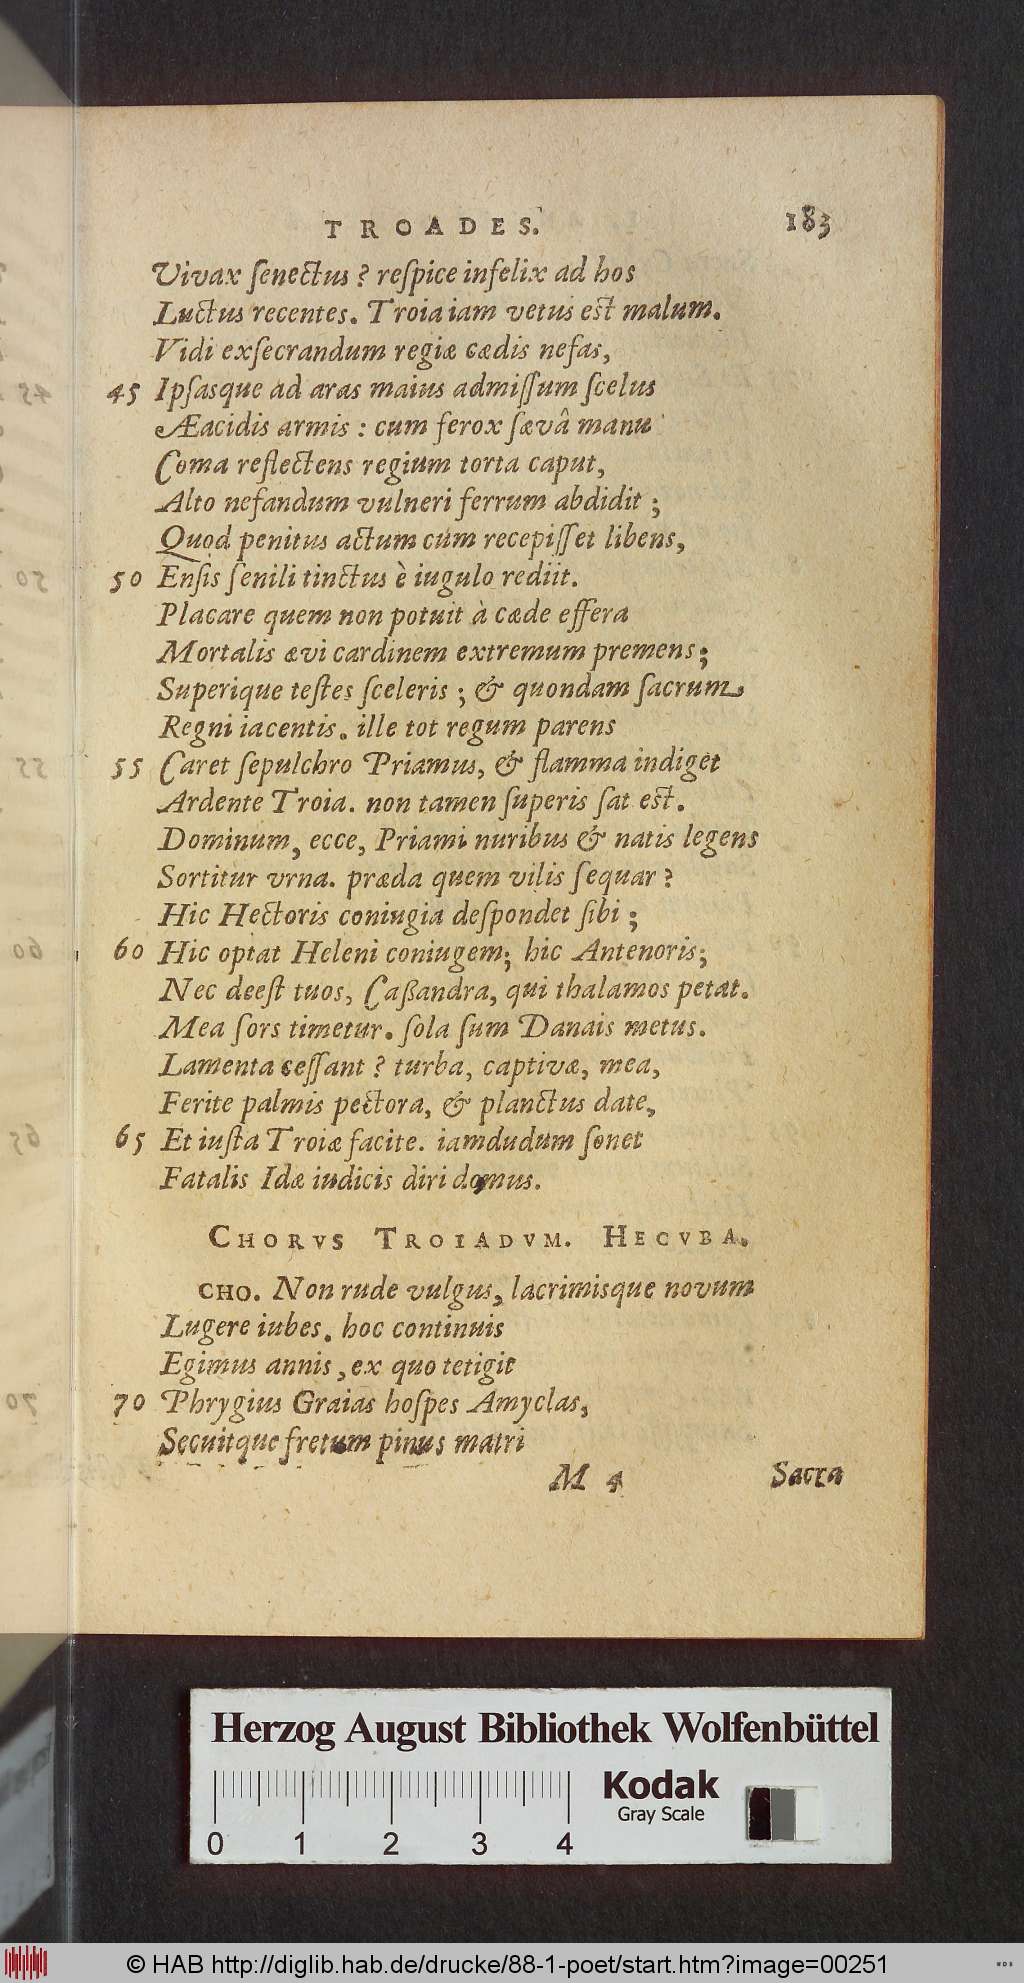 TROADES. 183
Vivax ſenectus? reſpice infelix ad hos
Luctus recentes. Troia iam vetus est malum.
Vidi exſecrandum regiæ cædis nefas,
45 Ipſasque ad aras maius admiſſum ſcelus
Æacidis armis: cum ferox ſævâ manu
Coma reflectens regium torta caput,
Alto nefandum vulneri ferrum abdidit;
Quod penitus actum cùm recepiſſet libens,
50 Enſis ſenili tinctus è iugulo rediit.
Placare quem non potuit à cæde effera
Mortalis ævi cardinem extremum premens;
Superique teſtes ſceleris; & quondam ſacrum
Regni iacentis. ille tot regum parens
55 Caret ſepulchro Priamus, & flamma indiget
Ardente Troia. non tamen ſuperis ſat est.
Dominum, ecce, Priami nuribus & natis legens
Sortitur vrna. præda quem vilis ſequar?
Hic Hectoris coniugia deſpondet ſibi;
60 Hic optat Heleni coniugem; hic Antenoris;
Nec deeſt tuos, Caßandra, qui thalamos petat.
Mea ſors timetur. ſola ſum Danais metus.
Lamenta ceſſant? turba, captivæ, mea,
Ferite palmis pectora, & planctus date,
65 Et iuſta Troiæ facite. iamdudum ſonet
Fatalis Idæ iudicis diri domus.
CHORVS TROIADVM. HECVBA.
CHO. Non rude vulgus, lacrimisque novum
Lugere iubes. hoc continuis
Egimus annis, ex quo tetigit
70 Phrygius Graias hoſpes Amyclas,
Secuitque fretum pinus matri
M 4 Sacra
Herzog August Bibliothek Wolfenbüttel
Kodak
Gray Scale
0 1 2 3 4
© HAB http://diglib.hab.de/drucke/88-1-poet/start.htm?image=00251